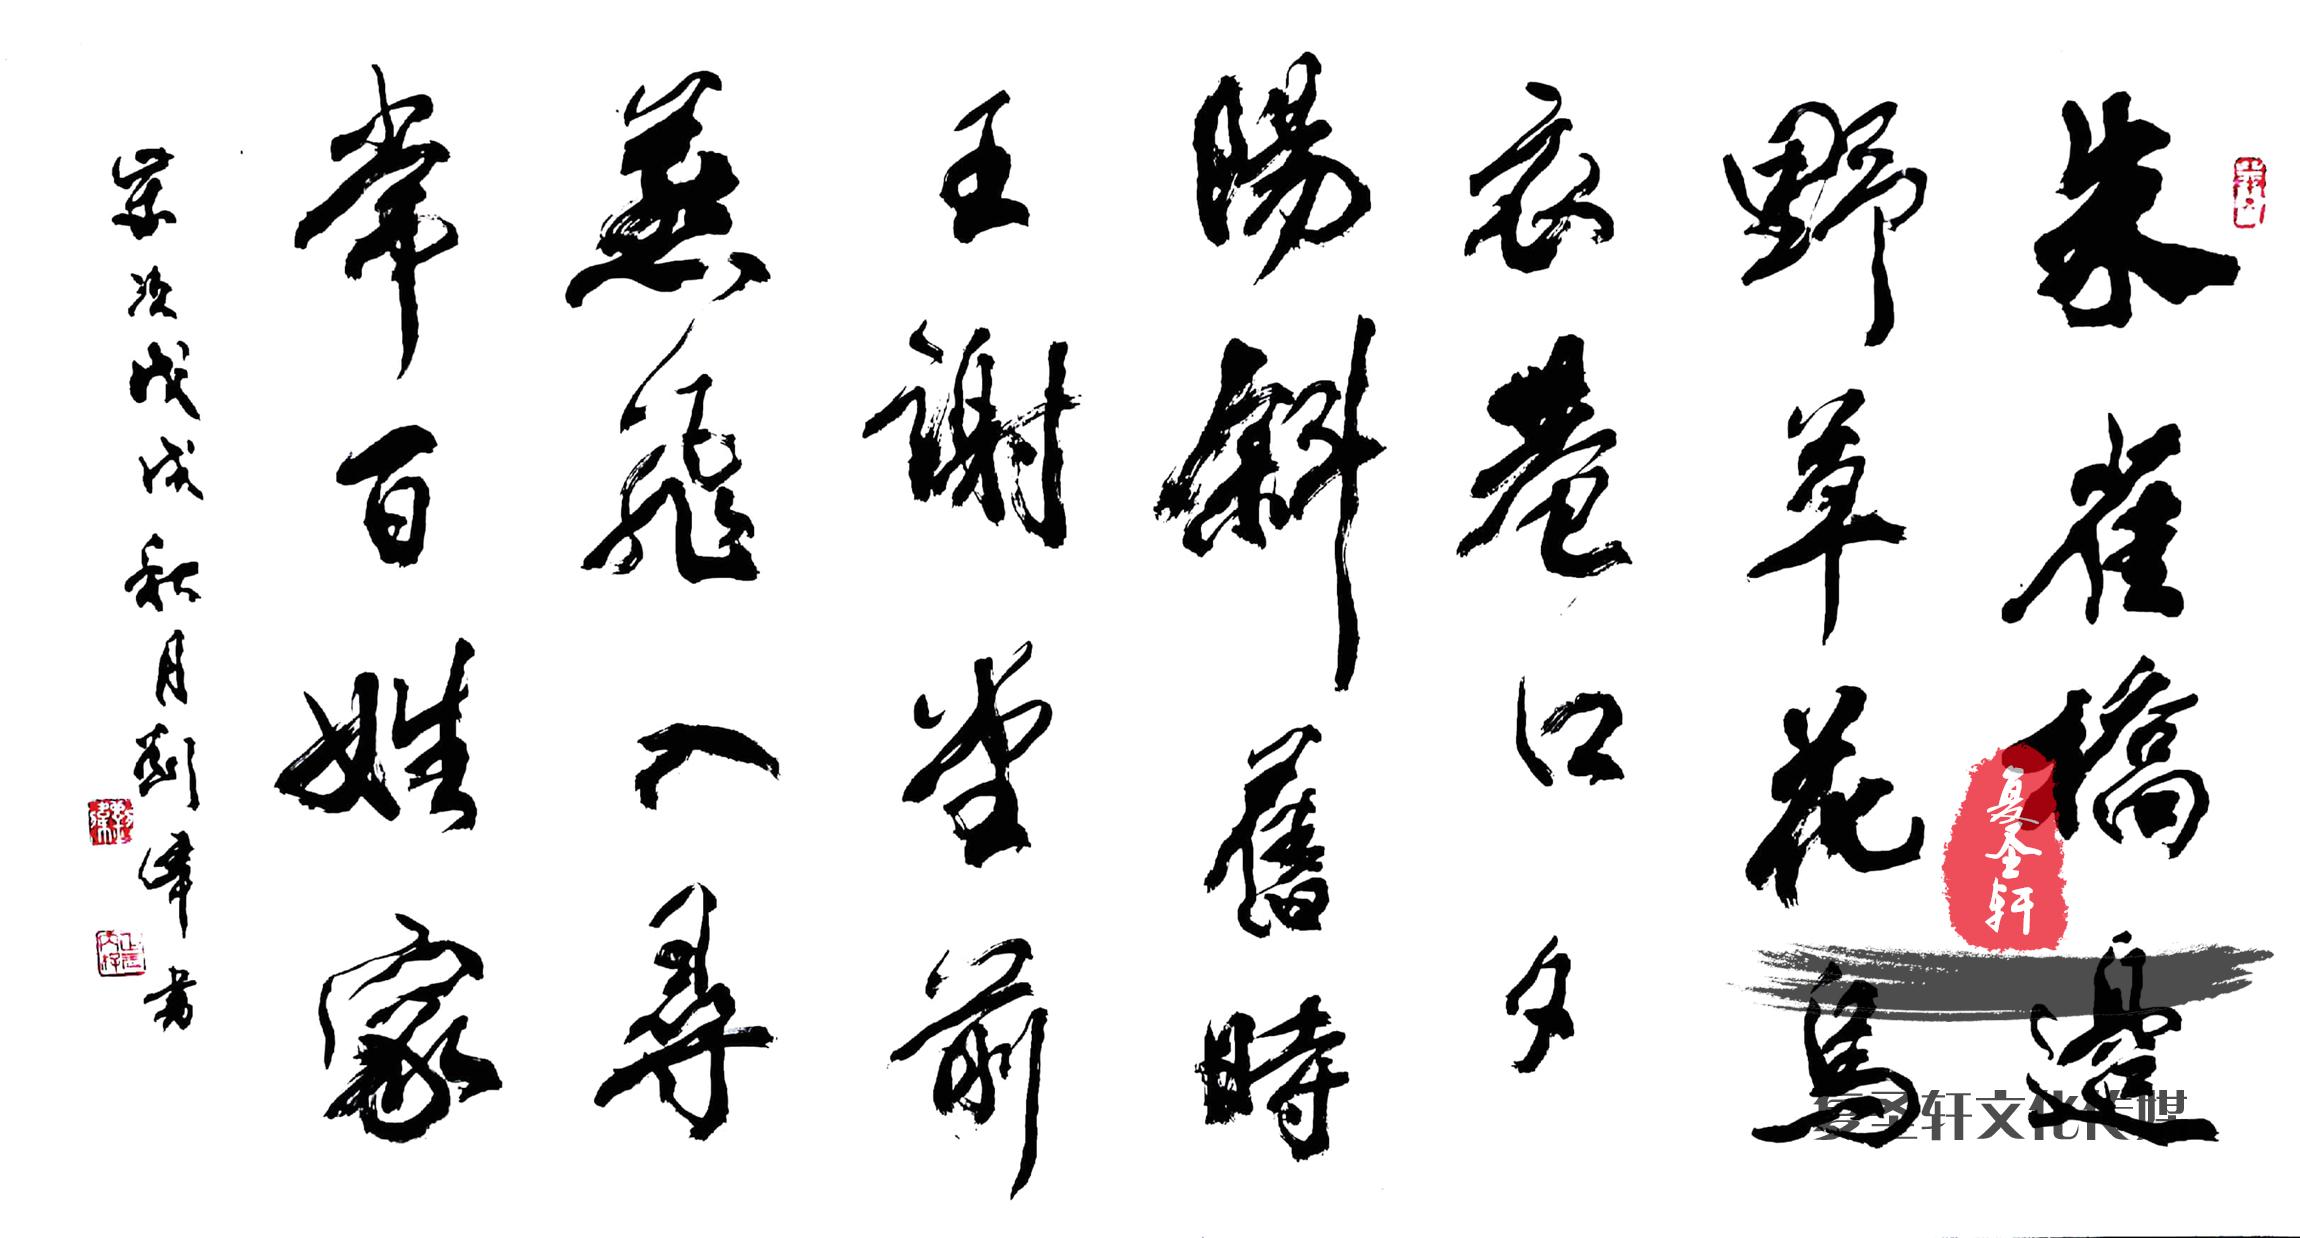 朱雀橋邊
野草花烏
衣巷口夕
陽斜舊時
王謝堂前
燕飛入尋
常百姓家
歲次戊戌秋月劉書
复圣轩
复圣轩文化传媒